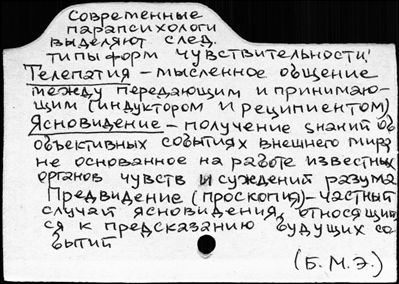 Современные
парапсихологи
выделяют след.
типы форм чувствительности:
Телепатия – мысленное общение
между передающим и принимаю-
щим (индуктором и реципиентом)
Ясновидение – получение знаний об
объективных событиях внешнего мира,
не основанное на работе известных
органов чувств и суждений разума
Предвидение (проскопия) – частный
случай ясновидения, относящий
ся к предсказанию будущих со
бытий
(Б. М. Э.)